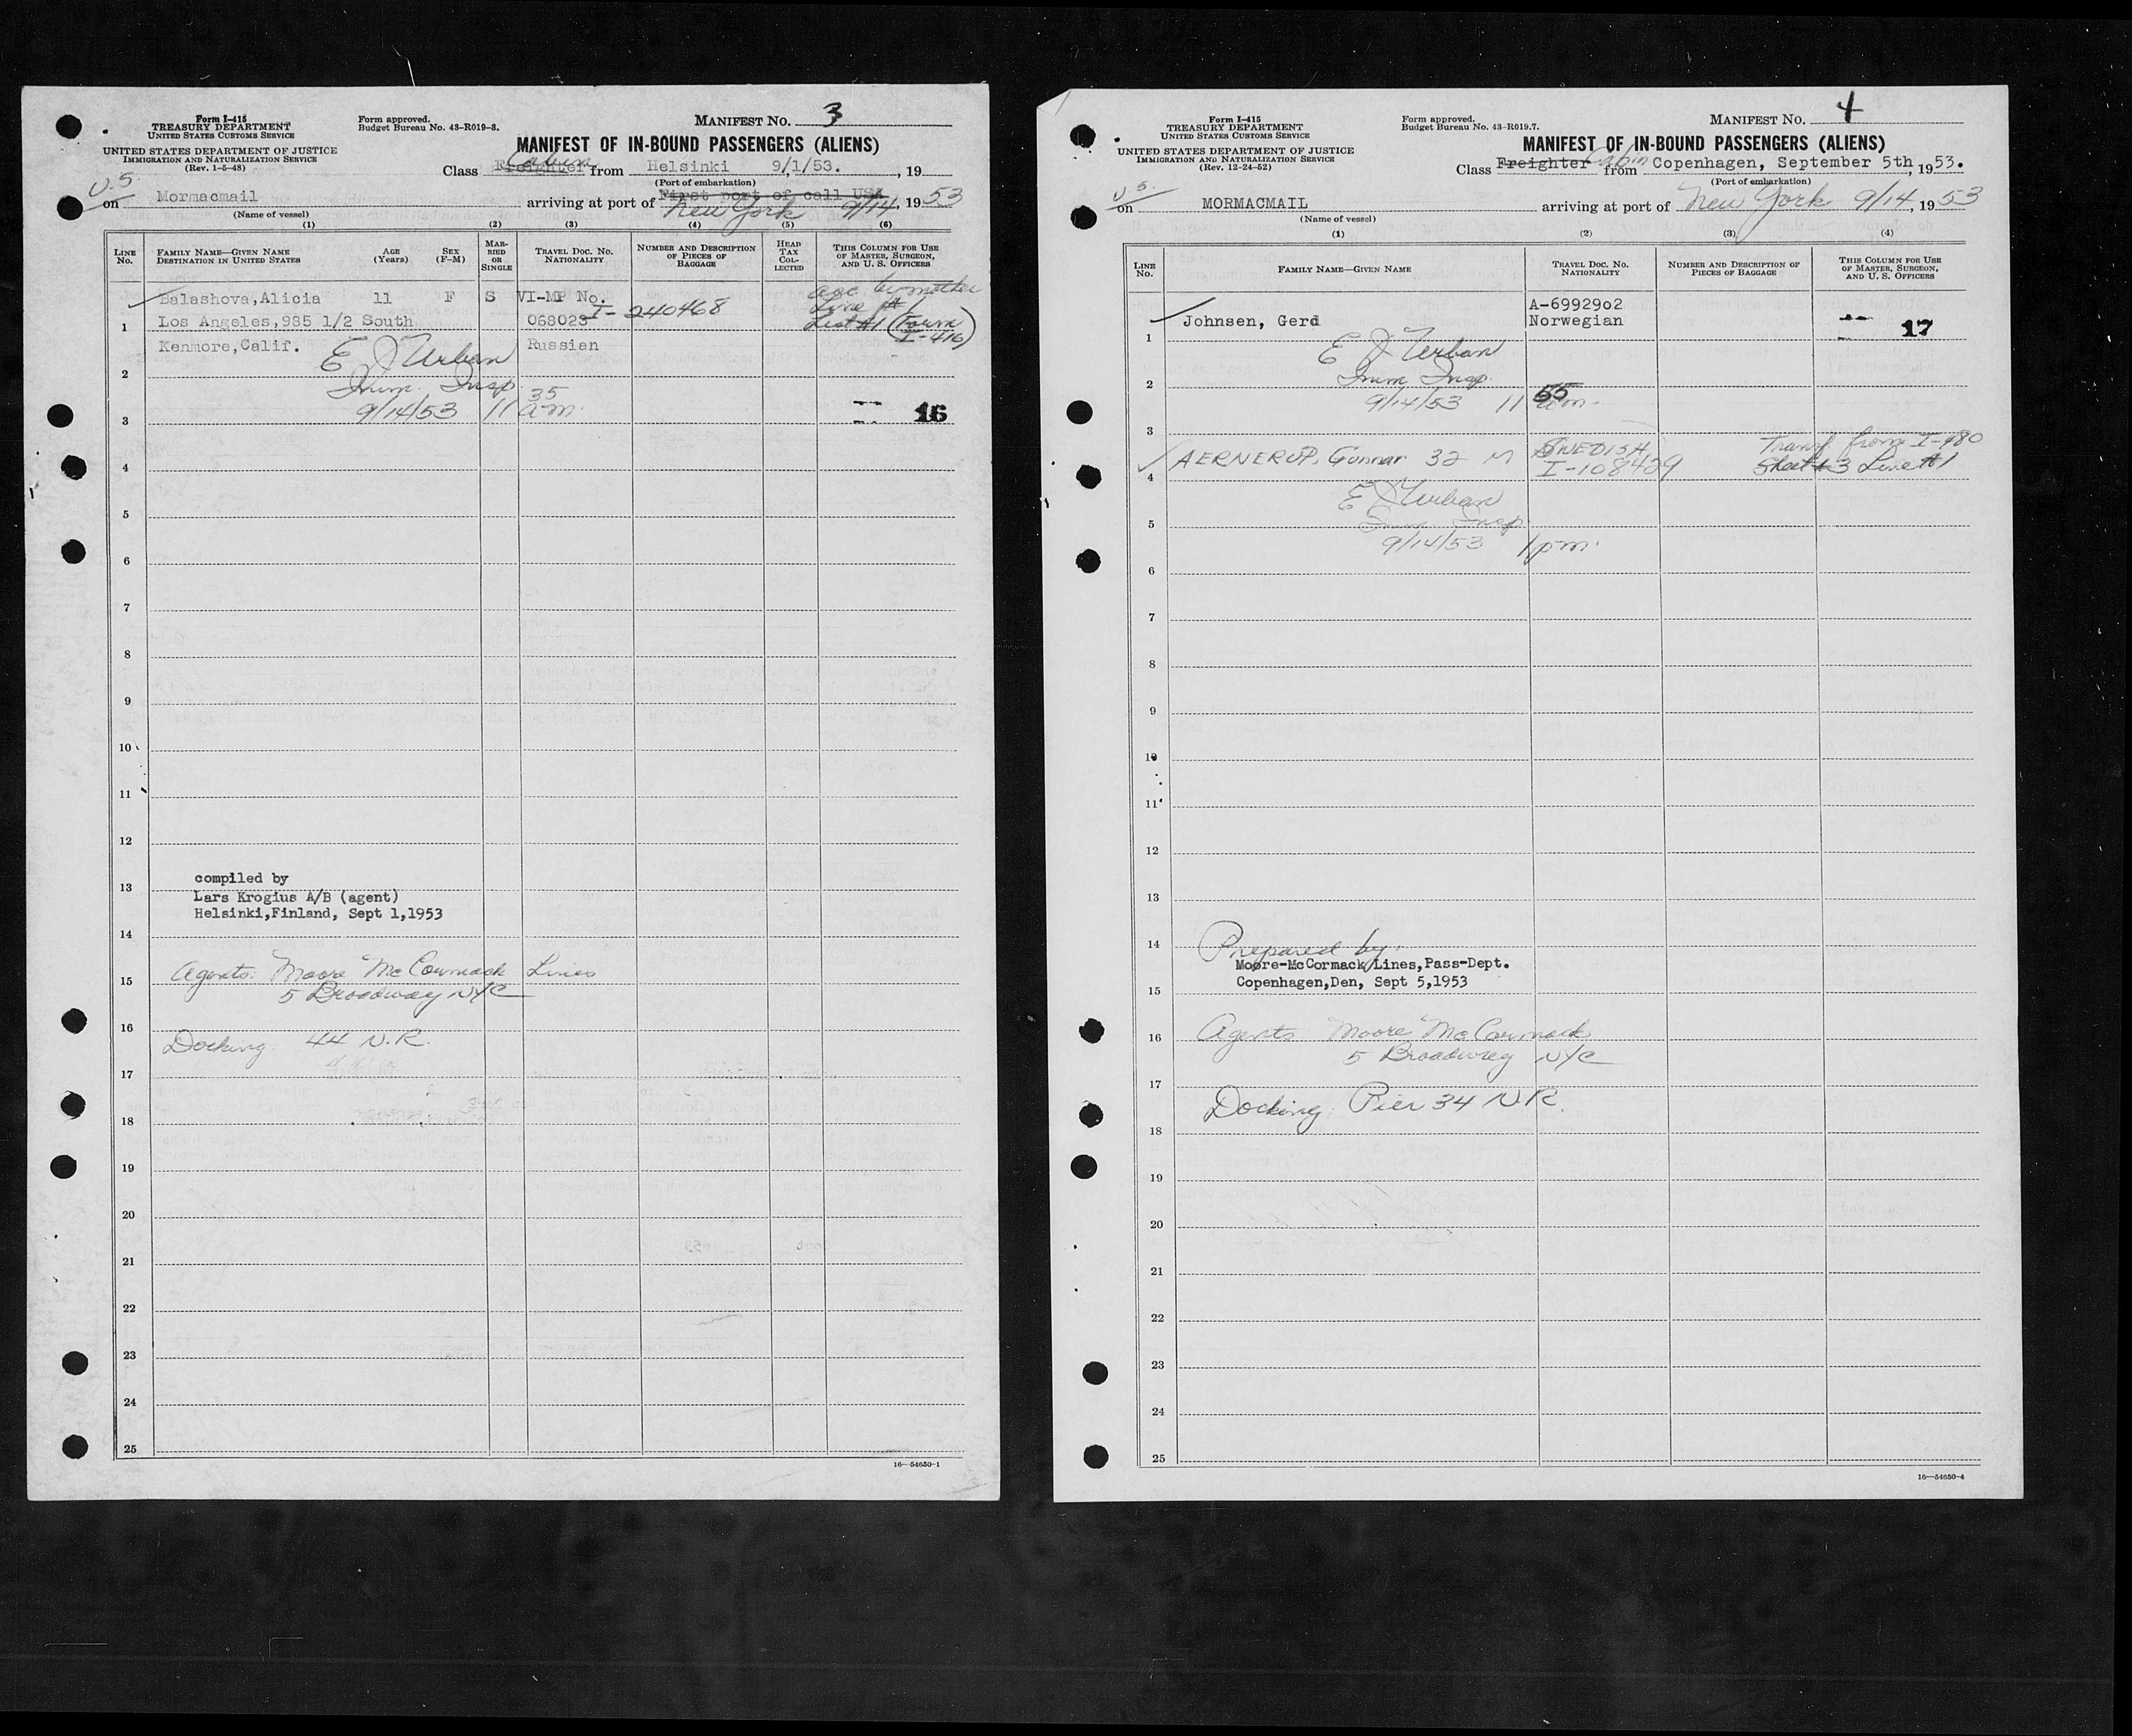 Form I-415
TREASURY DEPARTMENT
UNITED STATES CUSTOMS SERVICE
UNITED STATES DEPARTMENT OF JUSTICE
IMMIGRATION AND NATURALIZATION SERVICE
(Rev. 1-5-48)
Form approved.
Budget Bureau No. 43-R019-3.
MANIFEST NO. 3
MANIFEST OF IN-BOUND PASSENGERS (ALIENS)
Class Freighter Cabin from Helsinki 9/1/53. , 19
(Port of embarkation)
U.S.
on Mormacmail arriving at port of First port of call USA New York 9/14, 1953
(Name of vessel)
(1) (2) (3) (4) (5) (6)
LINE No.
FAMILY NAME—GIVEN NAME
DESTINATION IN UNITED STATES
AGE (Years)
SEX (F-M)
MARRIED OR SINGLE
TRAVEL DOC. NO.
NATIONALITY
NUMBER AND DESCRIPTION OF PIECES OF BAGGAGE
HEAD TAX COLLECTED
THIS COLUMN FOR USE OF MASTER, SURGEON, AND U. S. OFFICERS
Balashova,Alicia 11 F S VI-MP No. age by mother
1 Los Angeles,985 1/2 South 068023 I-240468 Line #1
List #1 (Form I-416)
Kenmore,Calif. Russian
E J Urban
2 Imm. Insp.
9/14/53 11 35 am.
3 16
4
5
6
7
8
9
10
11
12
compiled by
13
Lars Krogius A/B (agent)
Helsinki,Finland, Sept 1,1953
14
Agents: Moore McCormack Lines
15
5 Broadway NYC
16
Docking: 44 N.R.
17
18
19
20
21
22
23
24
25
16—54650-1
Form I-415
TREASURY DEPARTMENT
UNITED STATES CUSTOMS SERVICE
UNITED STATES DEPARTMENT OF JUSTICE
IMMIGRATION AND NATURALIZATION SERVICE
(Rev. 12-24-52)
Form approved.
Budget Bureau No. 43-R019.7.
MANIFEST NO. 4
MANIFEST OF IN-BOUND PASSENGERS (ALIENS)
Class Freighter Cabin from Copenhagen, September 5th, 1953.
(Port of embarkation)
U.S.
on MORMACMAIL arriving at port of New York 9/14, 1953
(Name of vessel)
(1) (2) (3) (4)
LINE No.
FAMILY NAME—GIVEN NAME
TRAVEL DOC. NO.
NATIONALITY
NUMBER AND DESCRIPTION OF PIECES OF BAGGAGE
THIS COLUMN FOR USE OF MASTER, SURGEON, AND U. S. OFFICERS
A-6992902
1 Johnsen, Gerd Norwegian 17
E J Urban
2 Imm Insp.
9/14/53 11 55 am.
3
AERNERUP, Gunnar 32 M SWEDISH Transf. from I-480
4 I-108429 Sheet #3 Line #1
E J Urban
5 Imm. Insp.
9/14/53 1 pm.
6
7
8
9
10
11
12
13
14 Prepared by:
Moore-McCormack Lines,Pass-Dept.
15 Copenhagen,Den, Sept 5,1953
16 Agents Moore McCormack
5 Broadway NYC
17
Docking: Pier 34 N.R.
18
19
20
21
22
23
24
25
16—54650-4